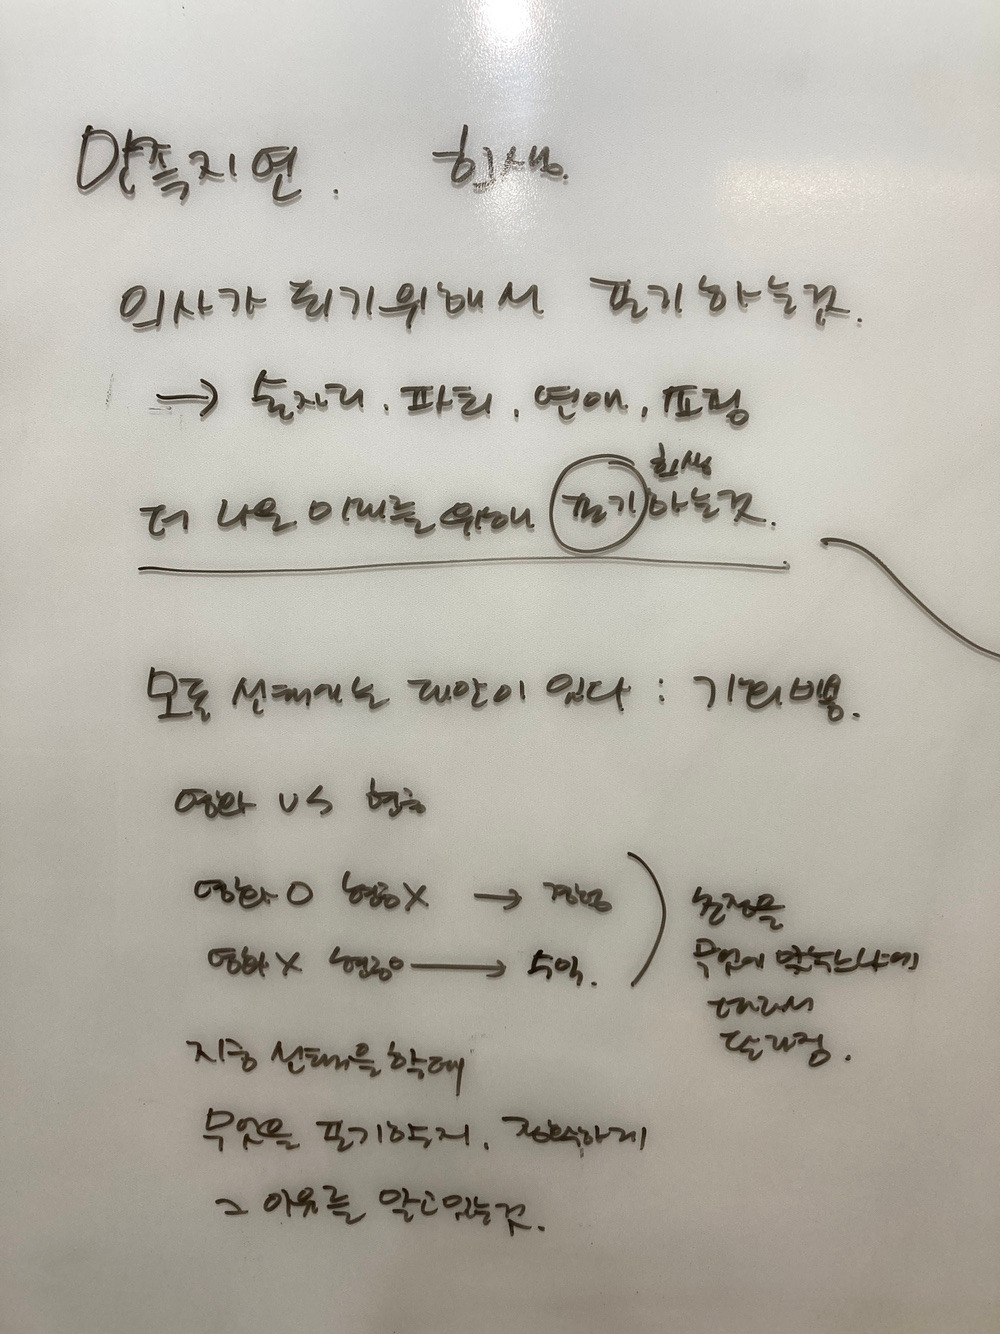 만족지연. 희생.
의사가 되기위해서 포기하는것.
→ 술자리, 파티, 연애, 쇼핑
희생
더 나은 미래를 위해 포기하는것.
모든 선택에는 대안이 있다 : 기회비용.
영화 vs 현금
영화 O 현금 X → 경험
영화 X 현금 O → 수익.
초점을
무엇에 맞추느냐에
따라서
달라짐.
지금 선택을 할때
무엇을 포기하는지, 정확하게
그 이유를 알고있는것.